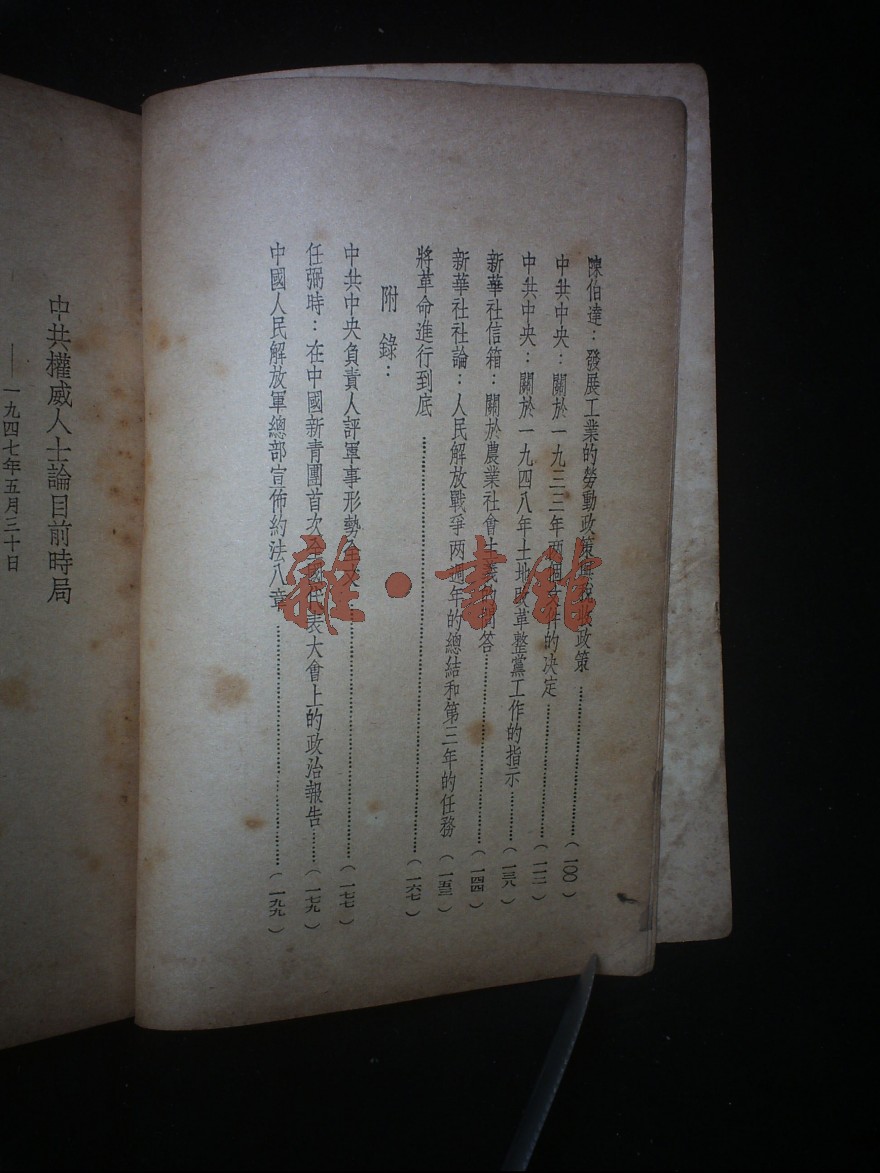 陳伯達：發展工業的勞動政策與稅收政策……（一〇〇）
中共中央：關於一九三三年兩個文件的決定……（一一二）
中共中央：關於一九四八年土地改革整黨工作的指示……（一三九）
新華社信箱：關於農業社會主義的問答……（一四四）
新華社社論：人民解放戰爭两週年的總結和第三年的任務（一五三）
將革命進行到底……（一六七）
附錄：
中共中央負責人評軍事形勢……（一七七）
任弼時：在中國新青團首次全國代表大會上的政治報告……（一七九）
中國人民解放軍總部宣佈約法八章……（一九九）
中共權威人士論目前時局
——一九四七年五月三十日
雜·書館